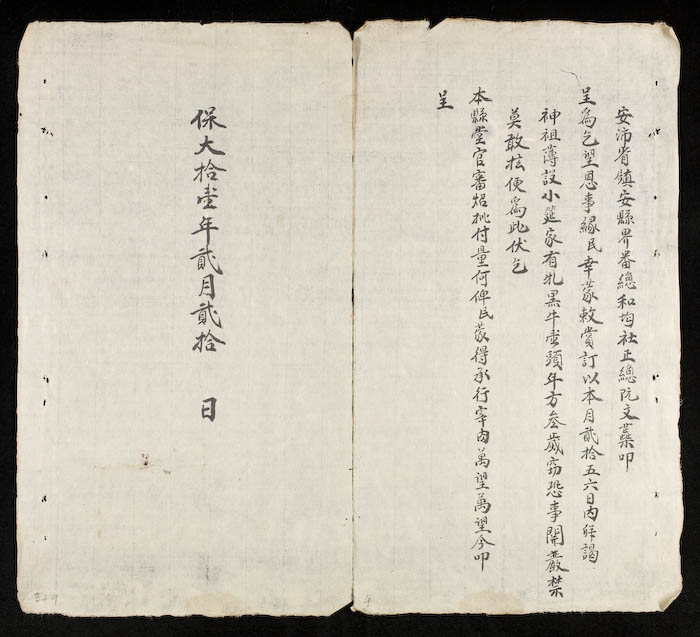 安沛省鎮安縣界畨總和均社正總阮文蘂叩
呈爲乞望恩事緣民幸蒙敕賞訂以本月貳拾五六日内拜謁
神祖薄設小筵家有牝黑牛壹頭年方叁歲窃恐事開嚴禁
莫敢擅便爲此伏乞
本縣堂官審炤批付量何俾民蒙得承行宰肉萬望萬望今叩
呈
保大拾壹年貳月貳拾 日